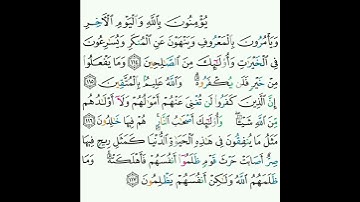 يُؤْمِنُونَ بِاللَّهِ وَالْيَوْمِ الْآخِرِ
وَيَأْمُرُونَ بِالْمَعْرُوفِ وَيَنْهَوْنَ عَنِ الْمُنكَرِ وَيُسَارِعُونَ
فِي الْخَيْرَاتِ وَأُولَٰئِكَ مِنَ الصَّالِحِينَ ١١٤ وَمَا يَفْعَلُوا
مِنْ خَيْرٍ فَلَن يُكْفَرُوهُ وَاللَّهُ عَلِيمٌ بِالْمُتَّقِينَ ١١٥
إِنَّ الَّذِينَ كَفَرُوا لَن تُغْنِيَ عَنْهُمْ أَمْوَالُهُمْ وَلَا أَوْلَادُهُم
مِّنَ اللَّهِ شَيْئًا وَأُولَٰئِكَ أَصْحَابُ النَّارِ هُمْ فِيهَا خَالِدُونَ ١١٦
مَثَلُ مَا يُنفِقُونَ فِي هَٰذِهِ الْحَيَاةِ الدُّنْيَا كَمَثَلِ رِيحٍ فِيهَا
صِرٌّ أَصَابَتْ حَرْثَ قَوْمٍ ظَلَمُوا أَنفُسَهُمْ فَأَهْلَكَتْهُ وَمَا
ظَلَمَهُمُ اللَّهُ وَلَٰكِنْ أَنفُسَهُمْ يَظْلِمُونَ ١١٧